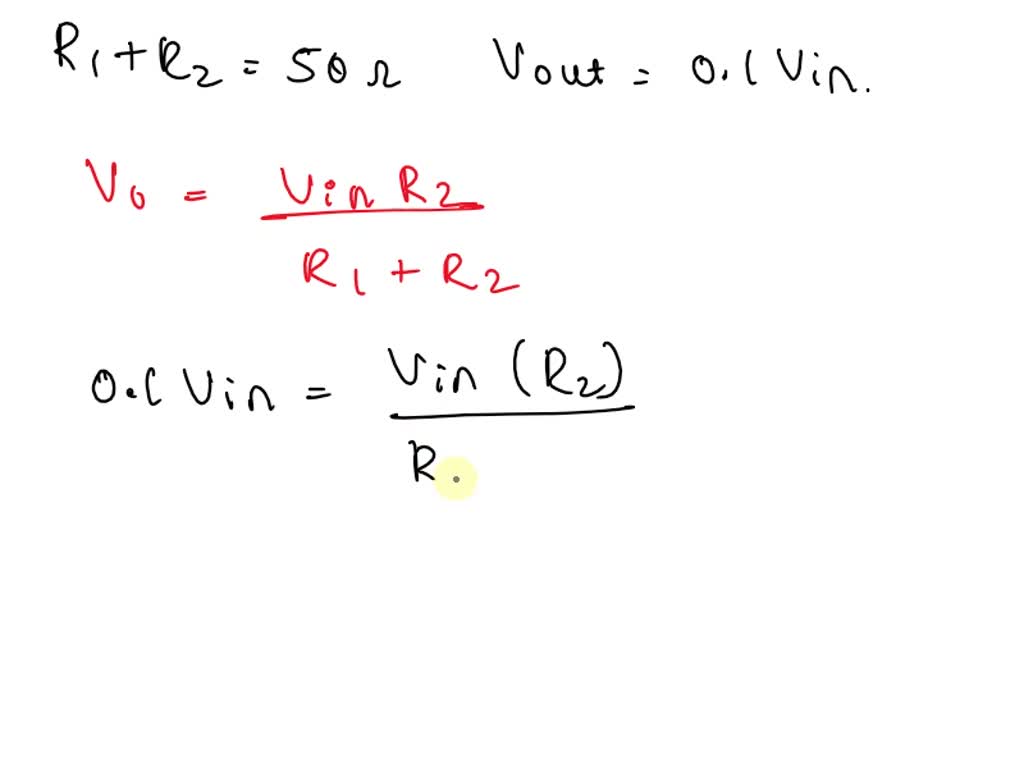 R1 + R2 = 50 Ω Vout = 0.1 Vin.
V0 = Vin R2 / R1 + R2
0.1 Vin = Vin (R2) / R